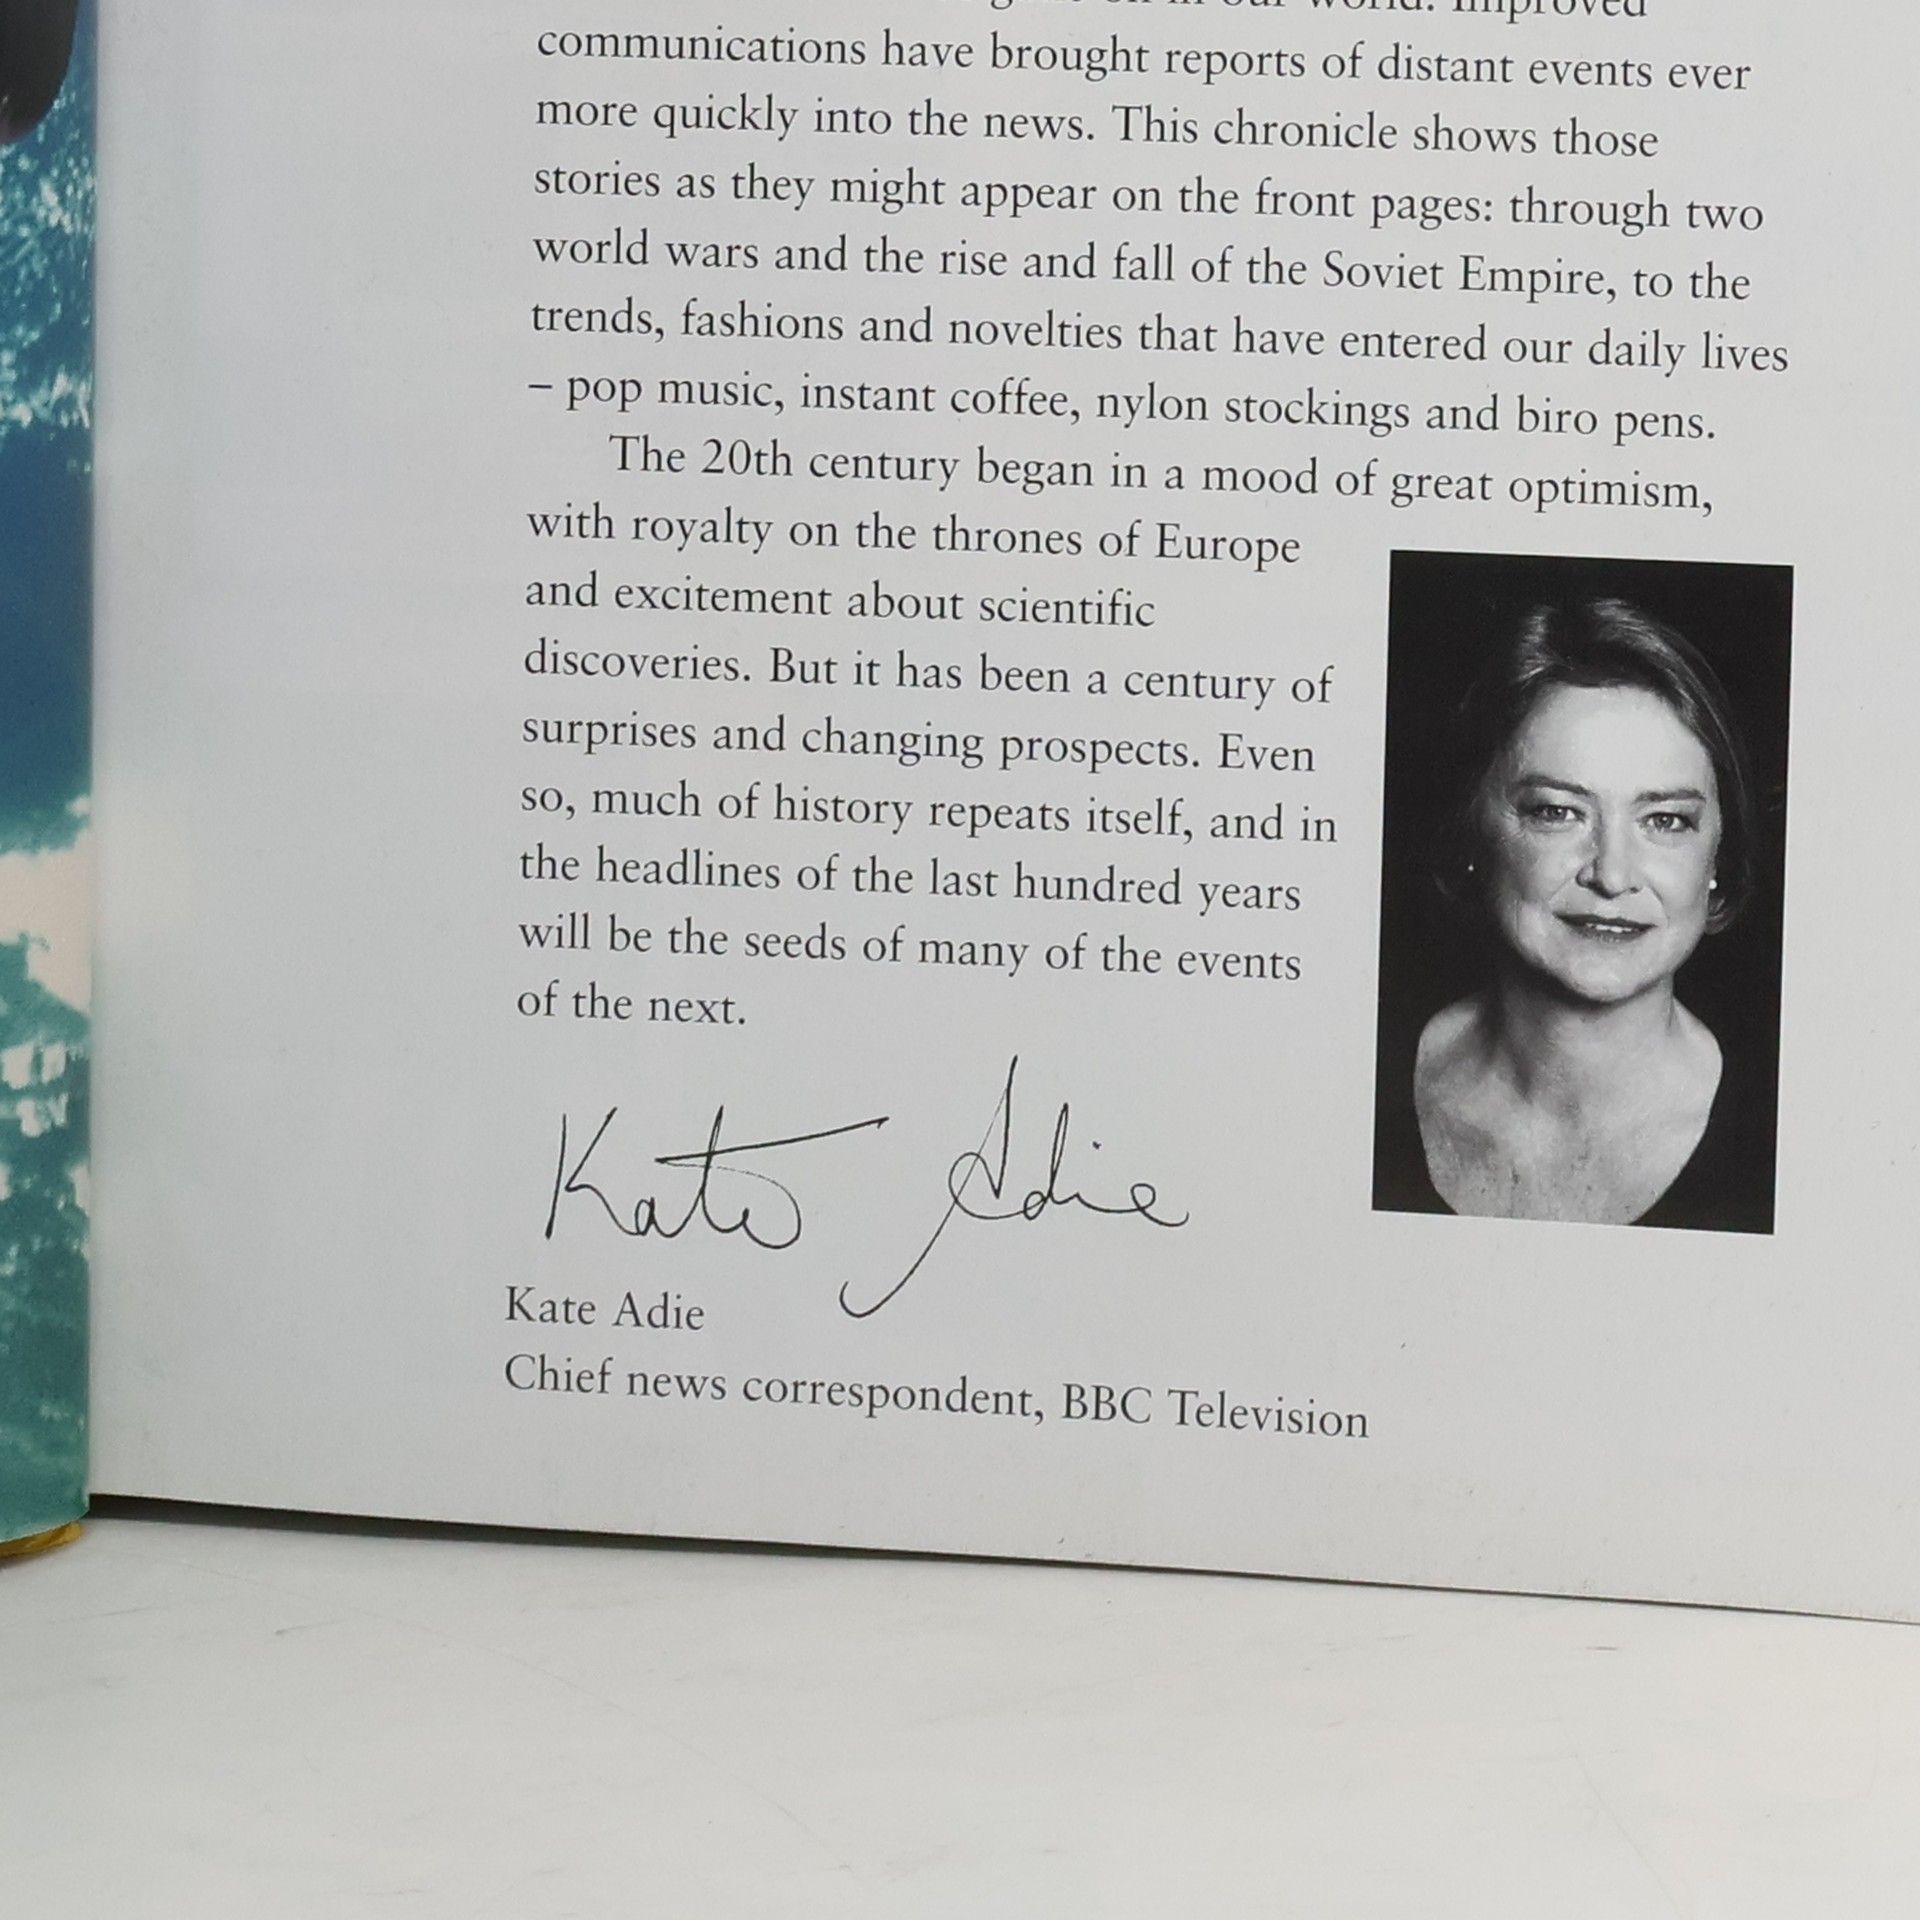 our world. Improved
communications have brought reports of distant events ever
more quickly into the news. This chronicle shows those
stories as they might appear on the front pages: through two
world wars and the rise and fall of the Soviet Empire, to the
trends, fashions and novelties that have entered our daily lives
– pop music, instant coffee, nylon stockings and biro pens.
The 20th century began in a mood of great optimism,
with royalty on the thrones of Europe
and excitement about scientific
discoveries. But it has been a century of
surprises and changing prospects. Even
so, much of history repeats itself, and in
the headlines of the last hundred years
will be the seeds of many of the events
of the next.
Kate Adie
Kate Adie
Chief news correspondent, BBC Television